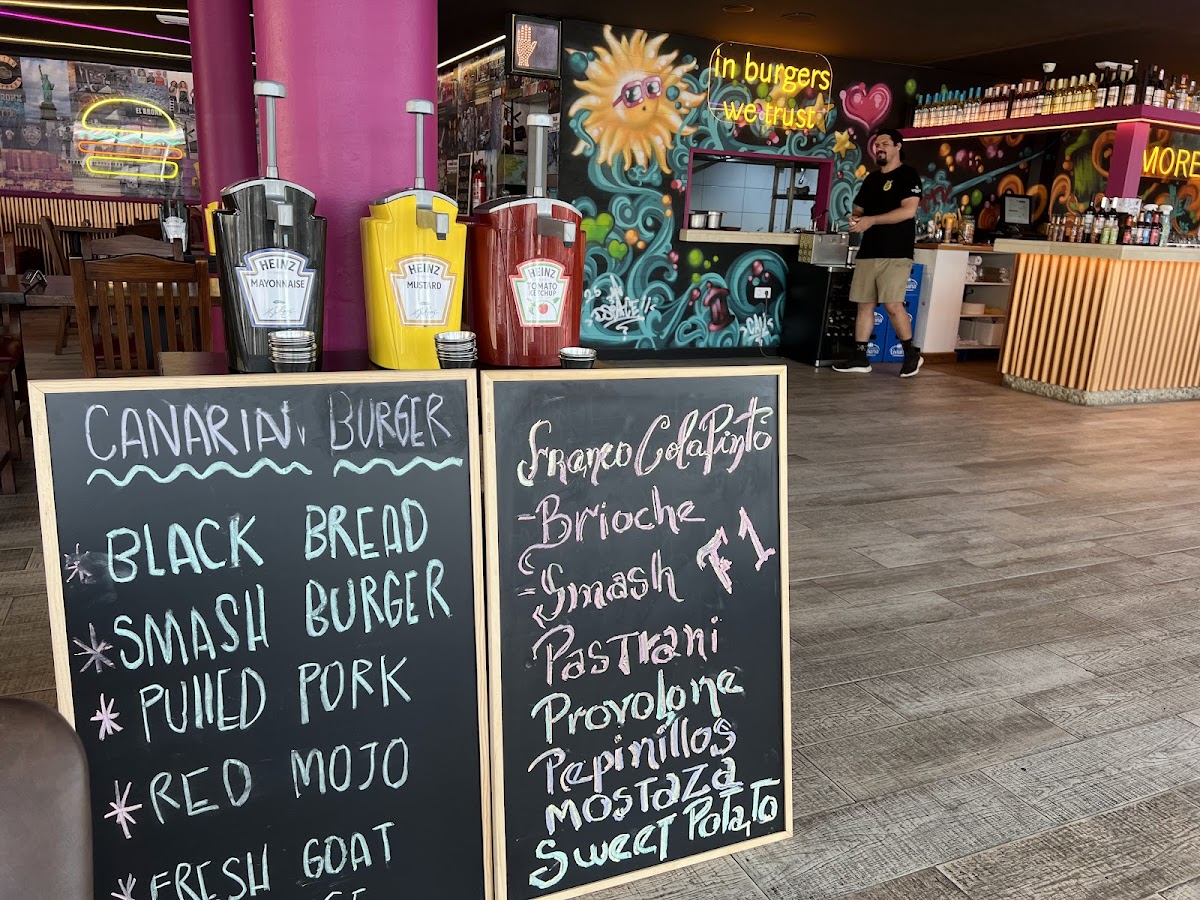 in burgers
we trust
MORE
HEINZ
MAYONNAISE
HEINZ
MUSTARD
HEINZ
TOMATO
KETCHUP
CANARIAN BURGER
* BLACK BREAD
* SMASH BURGER
* PULLED PORK
* RED MOJO
* FRESH GOAT
Franco ColaPinto
- Brioche
- Smash F1
PasTrani
Provolone
Pepinillos
mosTaza
Sweet PoTaTo